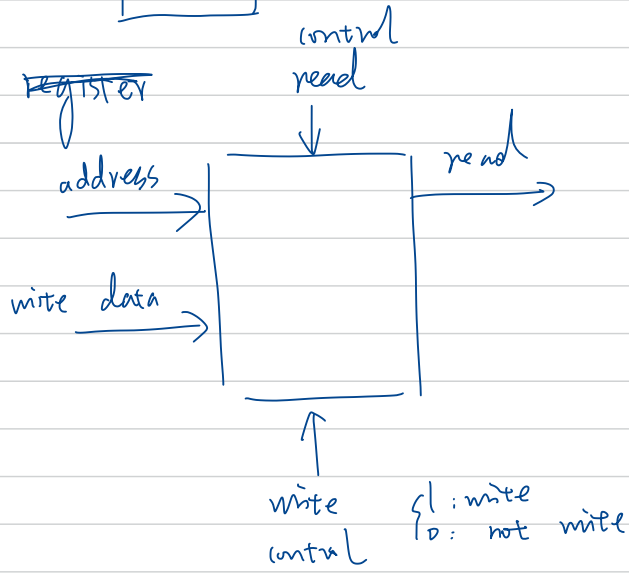 control
read
register
address
read
write data
write
control
1 : write
0 : not write